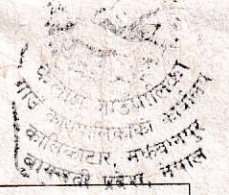 गाउँपालिका
गाउँ कार्यपालिकाको कार्यालय
कालिकाटार, मकवानपुर
बागमती प्रदेश, नेपाल